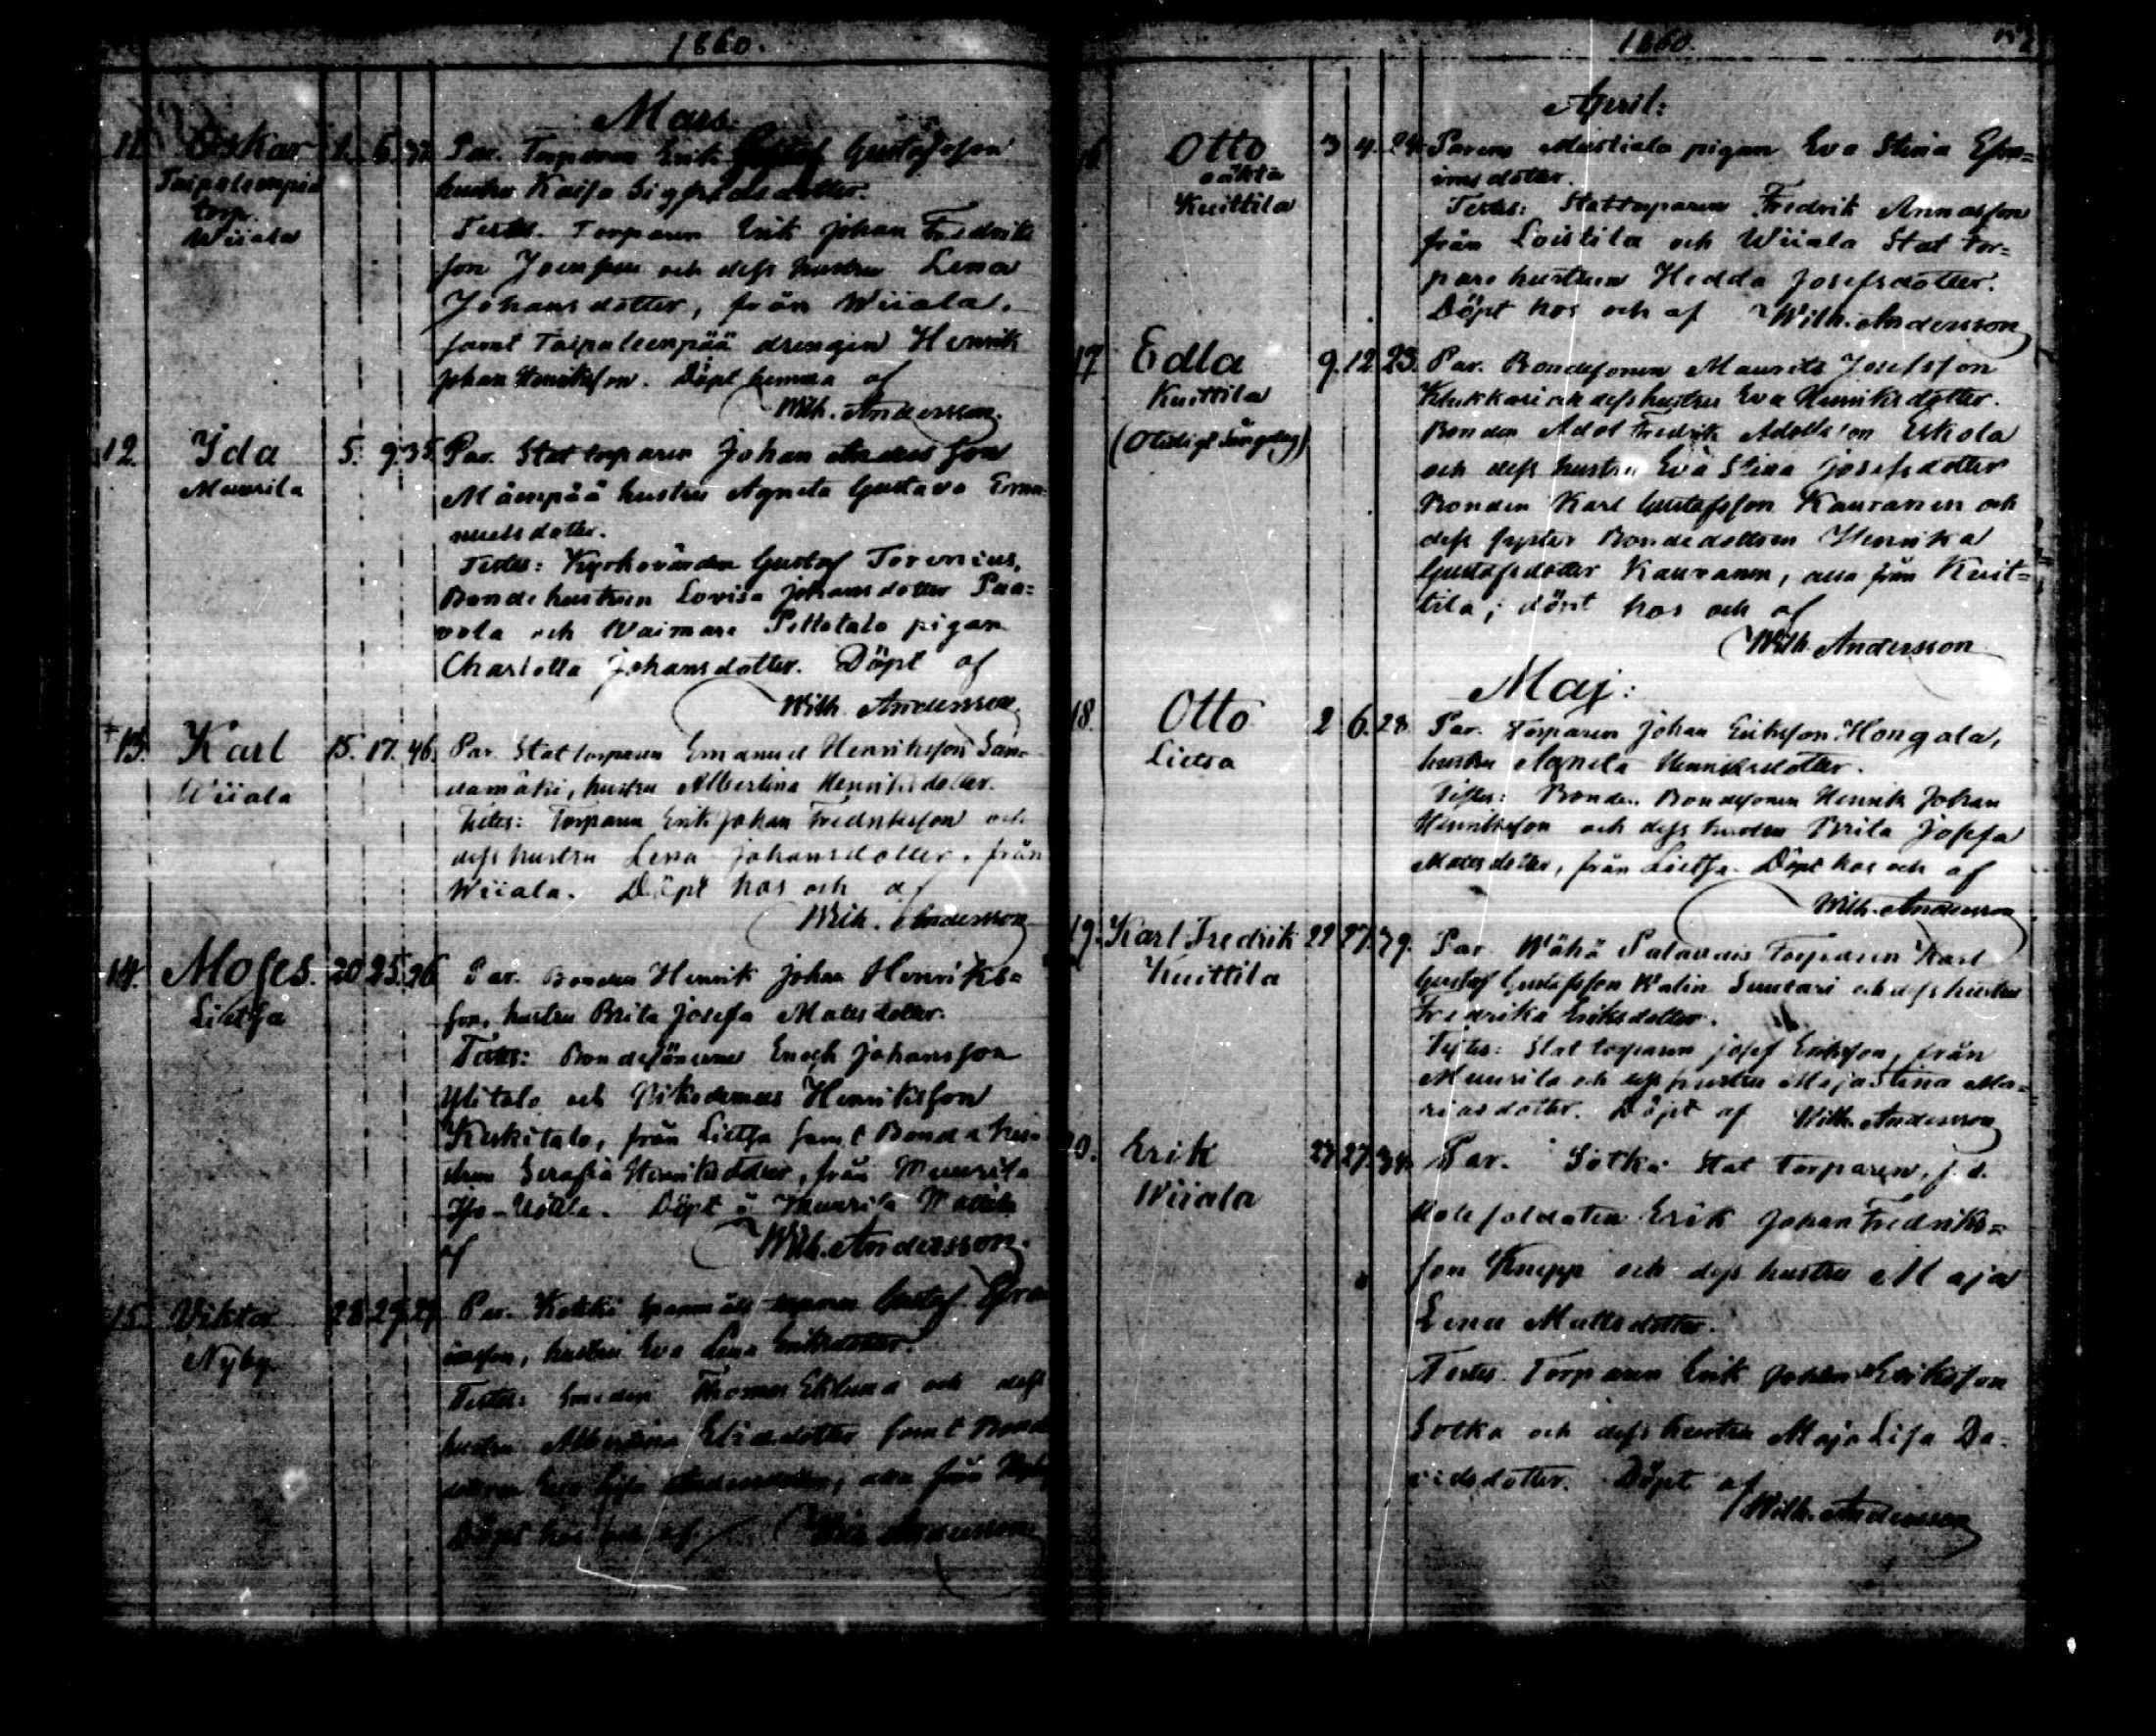 1860.
Mars:
11. Oskar 1. 6. 37. Par. Torparen Erik Gustafsson
Taipaleenpää hustru Kaisa Sigfridsdotter.
torp.
Wiiala
Testes. Torparen Erik Johan Fredriks
son och dess hustru Lena
Johansdotter, från Wiiala,
samt Taipaleenpää drengen Henrik
Johan Henriksson. Döpt hemma af
Wilh. Andersson.
12. Ida 5. 9. 35. Par. Stattorparen Johan Andersson
Muurila Mäenpää hustru Agneta Gustava Ema-
nuelsdotter.
Testes: Kyrkovärden Gustaf Torenius,
Bondehustrun Lovisa Johansdotter Paa-
vola och Waimare Peltotalo pigan
Charlotta Johansdotter. Döpt af
Wilh. Andersson.
+ 13. Karl 15. 17. 46. Par. Stattorparen Emanuel Henriksson San-
Wiiala damäki, hustru Albertina Henriksdotter.
Testes: Torparen Erik Johan Fredriksson och
dess hustru Lena Johansdotter, från
Wiiala. Döpt hos och af
Wilh. Andersson
14. Moses. 20 25. 26 Par. Bonden Henrik Johan Henriks-
Lietsa son, hustru Brita Josefa Mattsdotter.
Testes: Bondesönerne Enoch Johansson
Ylitalo och Nikodemus Henriksson
Keskitalo, från Lietsa samt Bondehu-
strun Serafia Henriksdotter, från Muurila
Döpt i Muurila
af Wilh. Andersson.
15. Viktor 28 29 29 Par. Gustaf Efra-
Nyby imsson, hustru Eva Lena Eriksdotter.
Testes: Smeden Thomas Eklund och dess
hustru Albertina Eliædotter samt
Eva Lisa alla från Nyby
Döpt hos och af Wilh. Andersson
1860.
April:
16. Otto 3 4. 24. Parens Mustiala pigan Eva Stina Efra-
oäkta imsdotter.
Kuittila Testes: Stattorparen Fredrik Annasson
från Loistila och Wiiala Stattor-
pare hustrun Hedda Josefsdotter.
Döpt hos och af Wilh. Andersson
17 Edla 9. 12 23. Par. Bondesonen Maurits Josefsson
Kuittila Klukkari och dess hustru Eva Henriksdotter.
Bonden Adolf Fredrik Adolfsson Eskola
och dess hustru Eva Stina Josefsdotter
Bonden Karl Gustafsson Kauranen och
dess syster Bondedottren Henrika
Gustafsdotter Kauranen, alla från Kuit-
tila; döpt hos och af
Wilh. Andersson
Maj:
18. Otto 2 6. 28 Par. Torparen Johan Eriksson Hongala,
Lietsa hustru Agneta Henriksdotter.
Testes: Bonden Bondesonen Henrik Johan
Henriksson och dess hustru Brita Josefa
Mattsdotter, från Lietsa. Döpt hos och af
Wilh. Andersson
19. Karl Fredrik 22 27. 39. Par. Wähä Torparen Karl
Kuittila Gustaf Gustafsson Walin Suutari och dess hustru
Fredrika Eriksdotter.
Testes: Stattorparen Josef Eriksson, från
Muurila och dess hustru Maja Stina Ma-
riasdotter. Döpt af Wilh. Andersson
20. Erik 27 27. 34. Par. Sotka Stat torparen, f. d.
Wiiala Rotesoldaten Erik Johan Fredriks-
son Knupp och dess hustru Maja
Lena Mattsdotter.
Testes. Torparen Erik Johan Eriksson
Sotka och dess hustru Maja Lisa Da-
vidsdotter. Döpt af
Wilh. Andersson